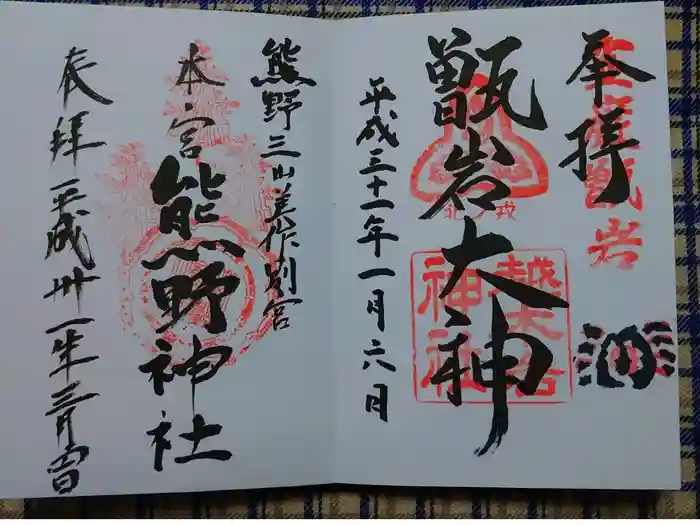 奉拝
甑岩
甑岩大神
北ノ戎
越木岩
神社
平成三十一年一月六日
熊野三山美作別宮
本宮
熊野神社
奉拝 平成卅一年三月吉日